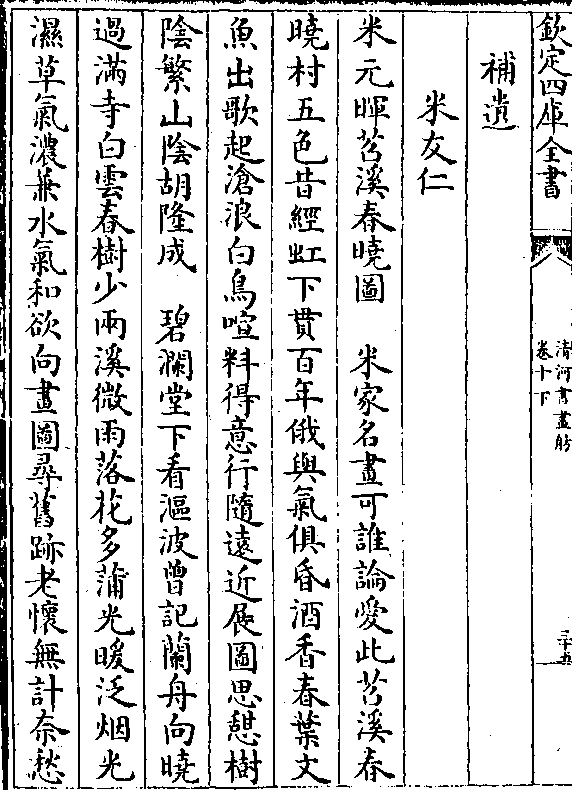 欽定四庫全書
清河書畫舫
卷十下
三十五
補遺
米友仁
米元暉苕溪春曉圖　米家名畫可誰論愛此苕溪春
曉村五色昔經虹下貫百年俄與氣俱昏酒香春葉文
魚出歌起滄浪白鳥喧料得意行隨遠近展圖思憇樹
陰繁山陰胡隆成　碧瀾堂下看漚波曽記蘭舟向曉
過滿寺白雲春樹少兩溪微雨落花多蒲光暖泛烟光
濕草氣濃兼水氣和欲向畫圖尋舊跡老懷無計奈愁